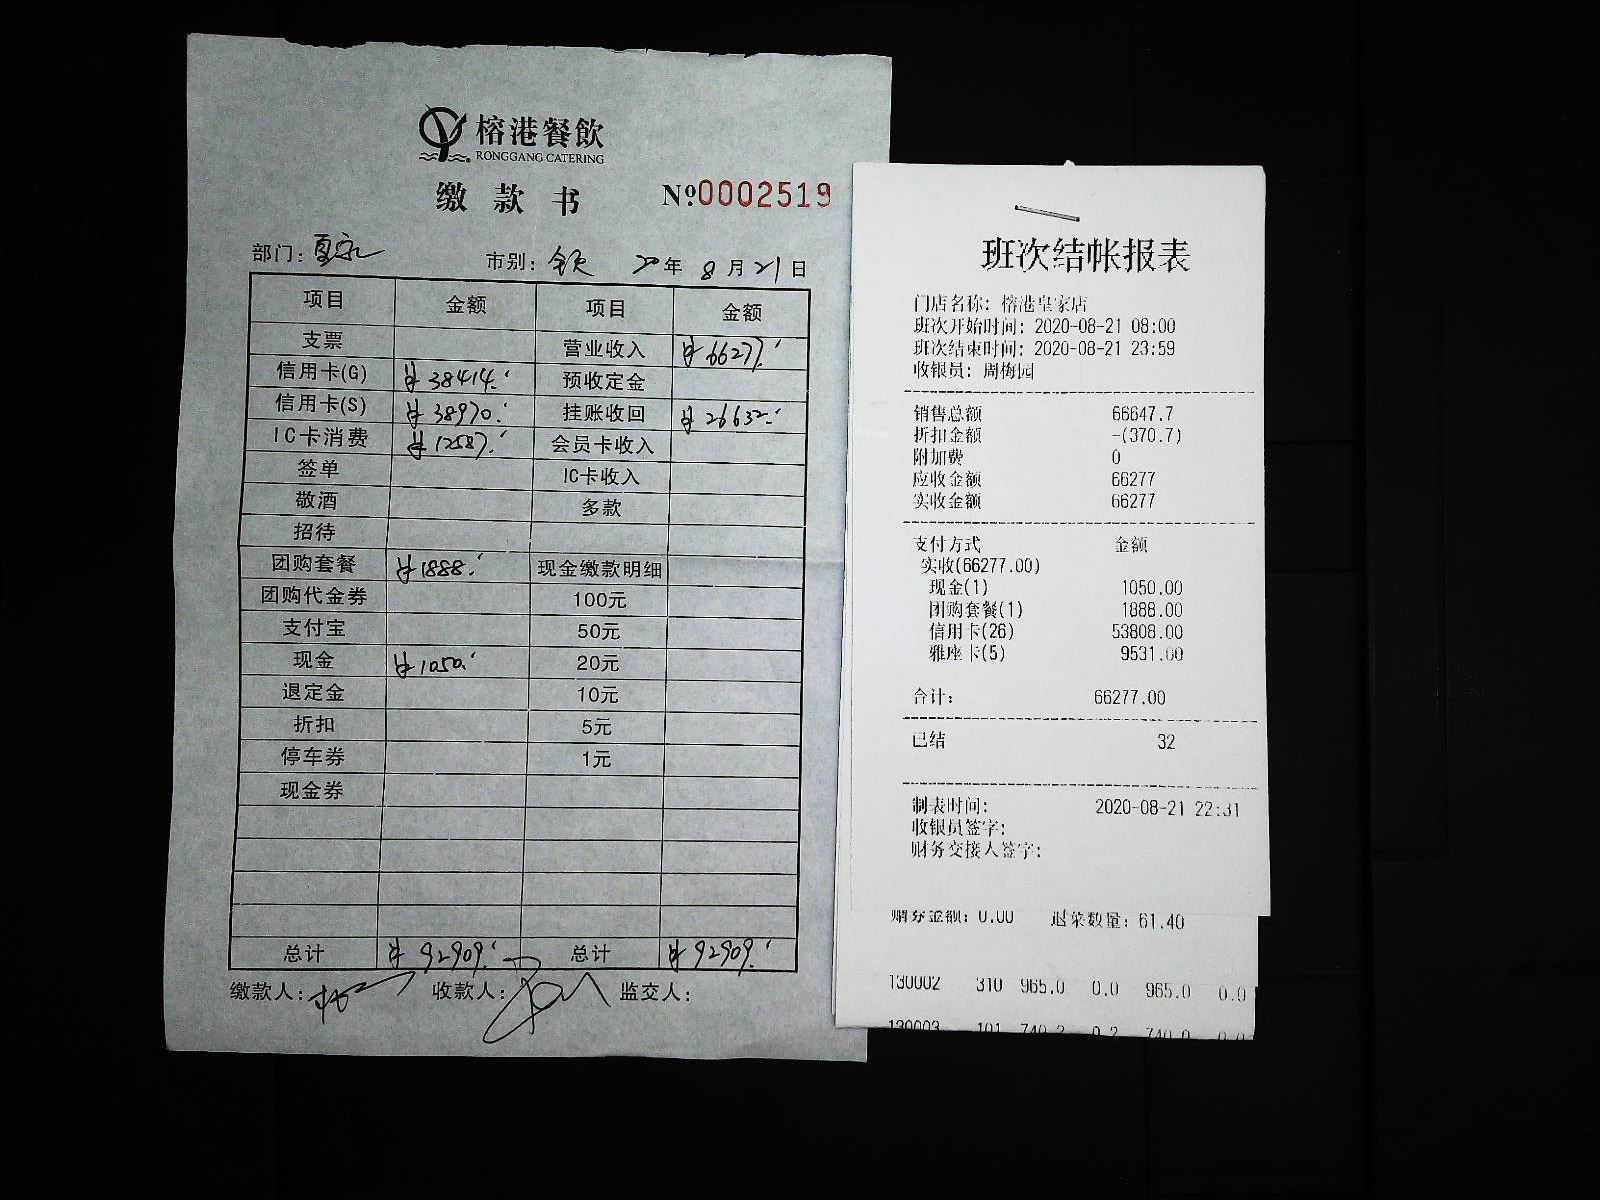 榕港餐飲
RONGGANG CATERING
缴款书 №0002519
部门: 市别: 全天 20年 8月21日
项目 金额 项目 金额
支票 营业收入 ¥66277.-
信用卡(G) ¥38414.- 预收定金
信用卡(S) ¥38970.- 挂账收回 ¥26632.-
IC卡消费 ¥12587.- 会员卡收入
签单 IC卡收入
敬酒 多款
招待
团购套餐 ¥1888.- 现金缴款明细
团购代金券 100元
支付宝 50元
现金 ¥1050.- 20元
退定金 10元
折扣 5元
停车券 1元
现金券
总计 ¥92909.- 总计 ¥92909.-
缴款人: 收款人: 监交人:
班次结帐报表
门店名称: 榕港皇家店
班次开始时间: 2020-08-21 08:00
班次结束时间: 2020-08-21 23:59
收银员: 周梅园
销售总额 66647.7
折扣金额 -(370.7)
附加费 0
应收金额 66277
实收金额 66277
支付方式 金额
实收(66277.00)
现金(1) 1050.00
团购套餐(1) 1888.00
信用卡(26) 53808.00
雅座卡(5) 9531.00
合计: 66277.00
已结 32
制表时间: 2020-08-21 22:31
收银员签字:
财务交接人签字:
购券金额: 0.00 退菜数量: 61.40
130002 310 965.0 0.0 965.0 0.0
130003 101 740.2 0.2 740.0 0.0